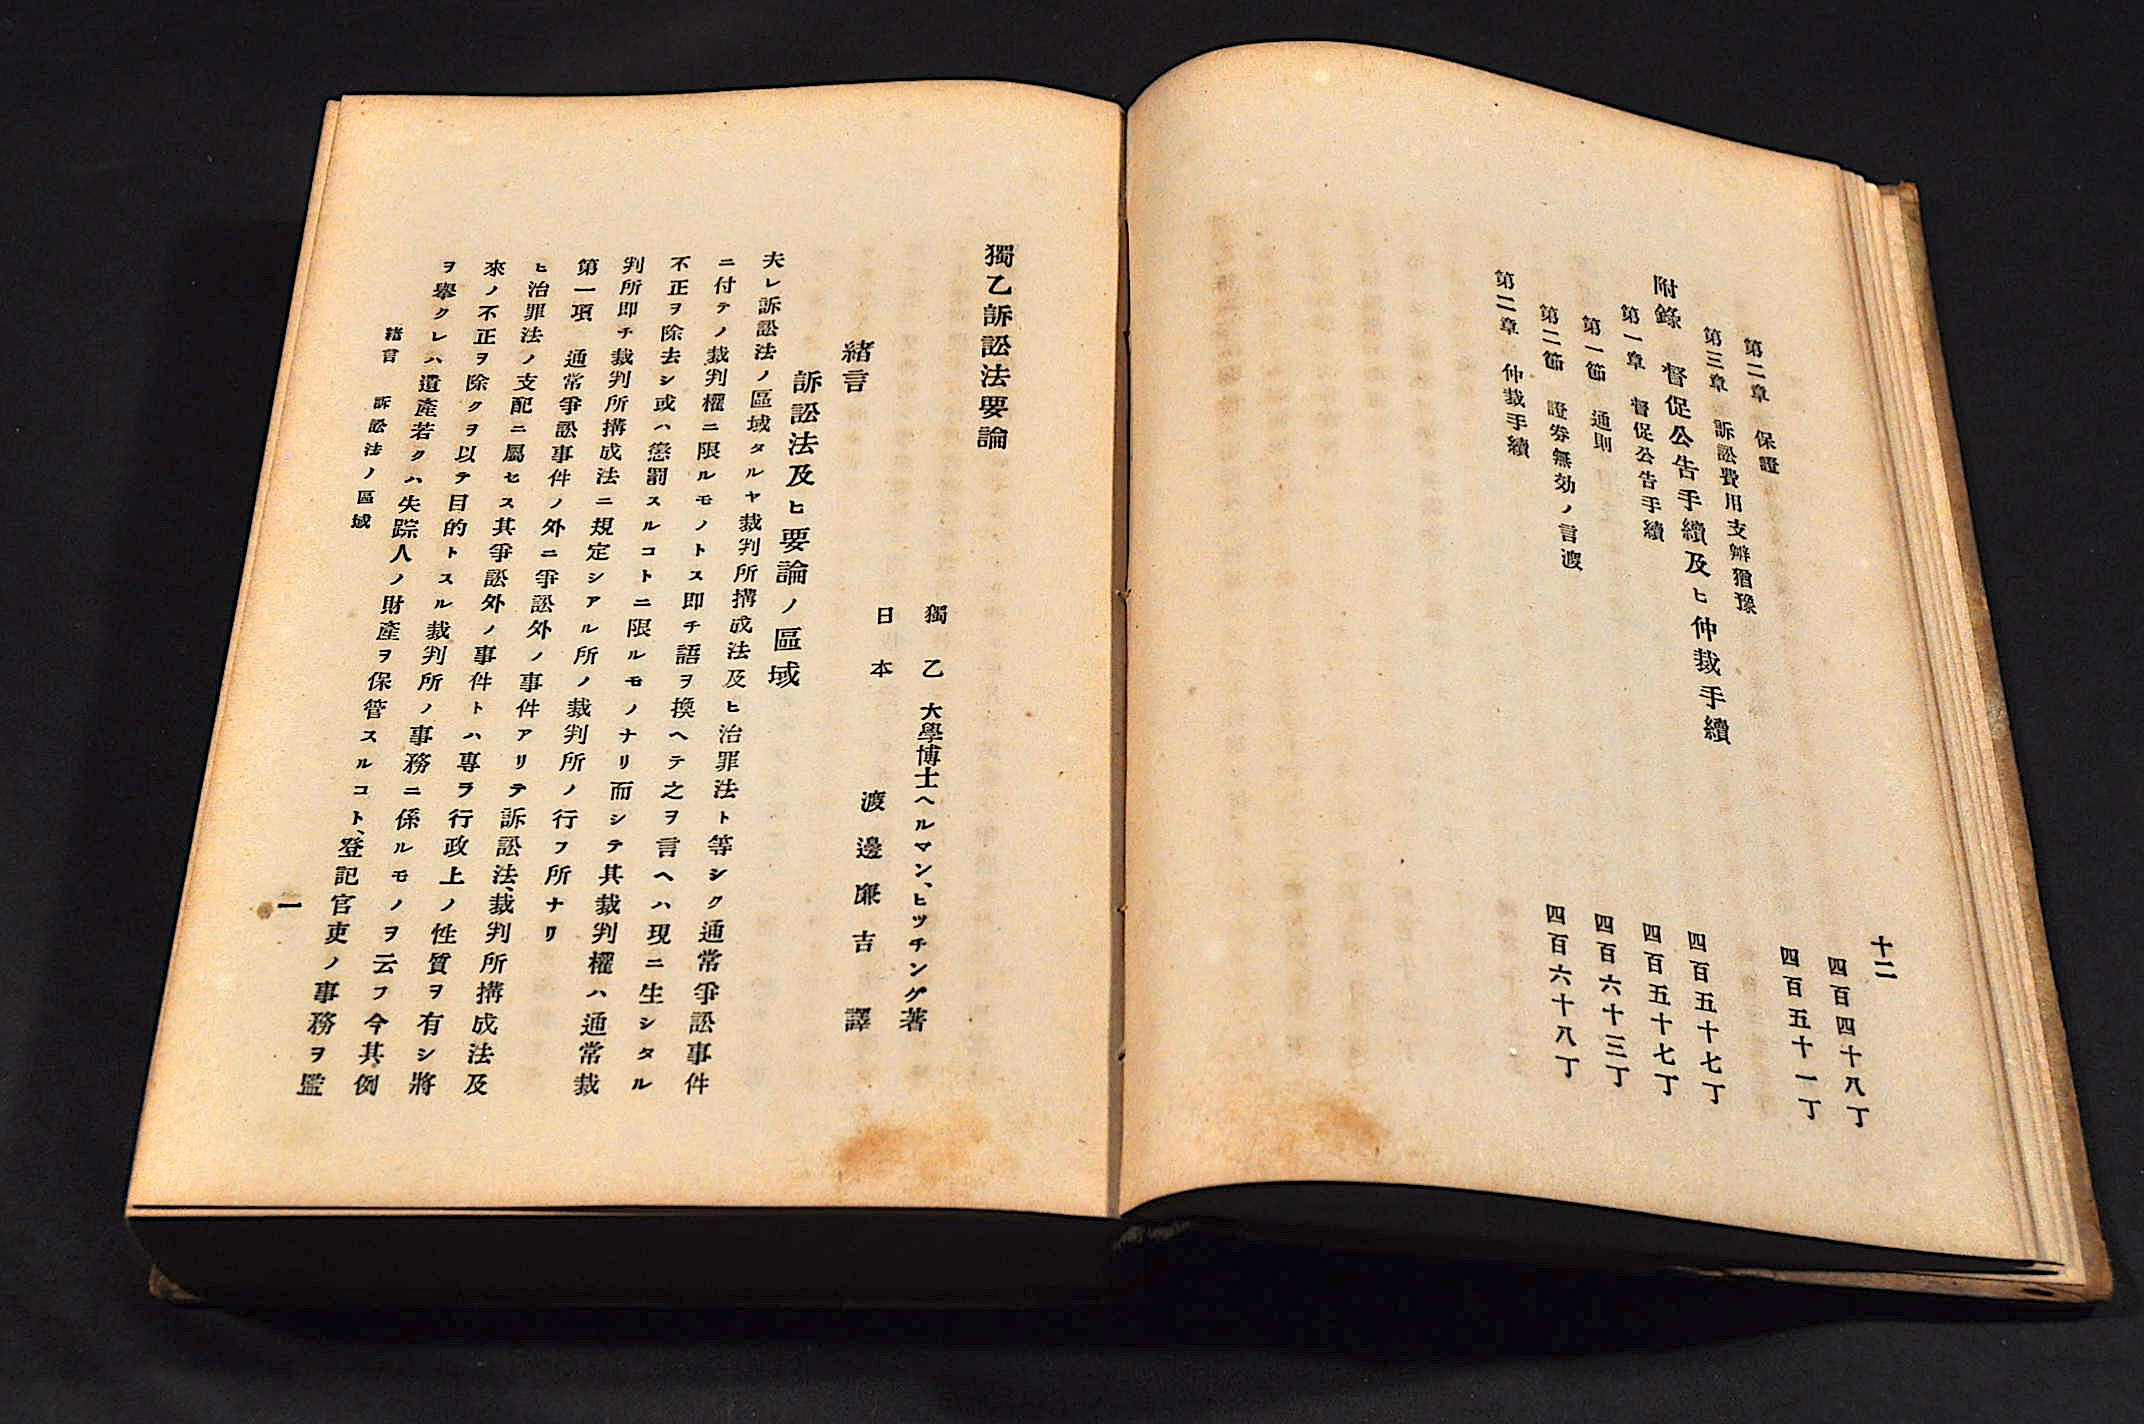 十二
第二章 保證 四百四十八丁
第三章 訴訟費用支辨猶豫 四百五十一丁
附錄 督促公告手續及ヒ仲裁手續
第一章 督促公告手續 四百五十七丁
第一節 通則 四百五十七丁
第二節 證券無効ノ言渡 四百六十三丁
第二章 仲裁手續 四百六十八丁
獨乙訴訟法要論
獨乙 大學博士ヘルマン、ヒツチング著
日本 渡邊廉吉 譯
緒言
訴訟法及ヒ要論ノ區域
夫レ訴訟法ノ區域タルヤ裁判所搆成法及ヒ治罪法ト等シク通常爭訟事件
ニ付テノ裁判權ニ限ルモノトス即チ語ヲ換ヘテ之ヲ言ヘハ現ニ生シタル
不正ヲ除去シ或ハ懲罰スルコトニ限ルモノナリ而シテ其裁判權ハ通常裁
判所即チ裁判所搆成法ニ規定シアル所ノ裁判所ノ行フ所ナリ
第一項 通常爭訟事件ノ外ニ爭訟外ノ事件アリテ訴訟法、裁判所搆成法及
ヒ治罪法ノ支配ニ屬セス其爭訟外ノ事件トハ專ラ行政上ノ性質ヲ有シ將
來ノ不正ヲ除クヲ以テ目的トスル裁判所ノ事務ニ係ルモノヲ云フ今其例
ヲ擧クレハ遺產若クハ失踪人ノ財產ヲ保管スルコト、登記官吏ノ事務ヲ監
緒言 訴訟法ノ區域
一